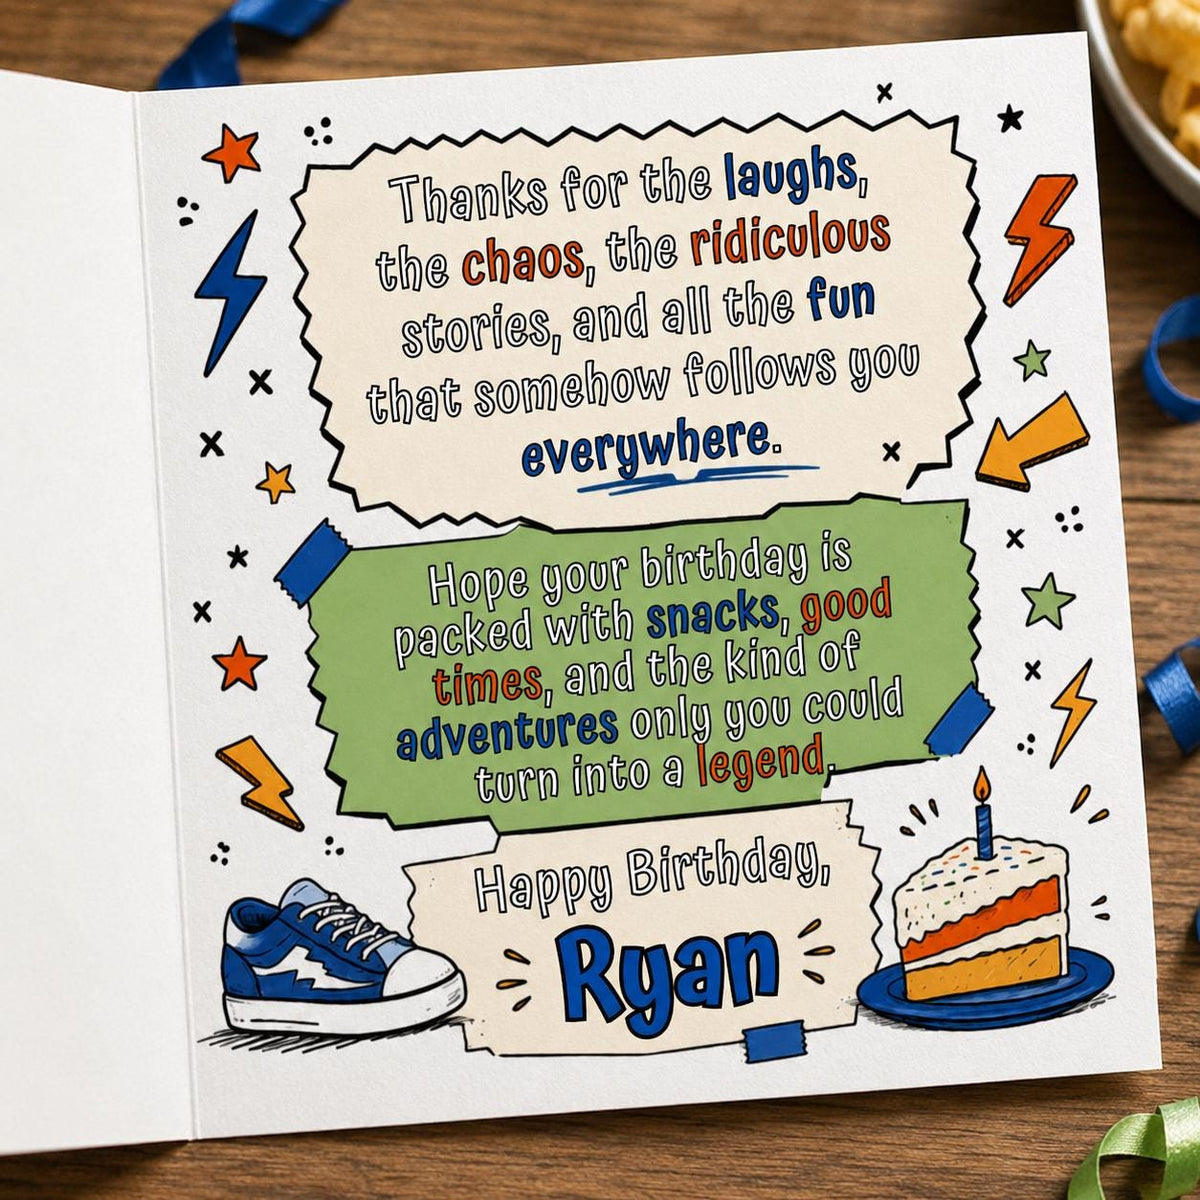 Thanks for the laughs,
the chaos, the ridiculous
stories, and all the fun
that somehow follows you
everywhere.
Hope your birthday is
packed with snacks, good
times, and the kind of
adventures only you could
turn into a legend.
Happy Birthday,
Ryan